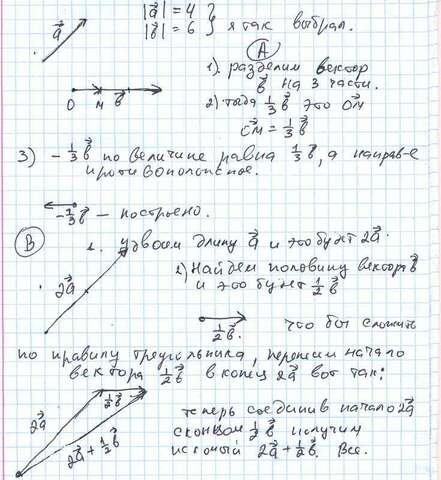 a⃗ |a⃗| = 4
|b⃗| = 6 } я так выбрал.
А
1). разделим вектор
b⃗ на 3 части.
O M b⃗
2) тогда 1/3 b⃗ это OM⃗
OM⃗ = 1/3 b⃗
3) - 1/3 b⃗ по величине равна 1/3 b⃗, а направ-е
противоположное.
-1/3 b⃗ – построено.
В
1. удвоим длину a⃗ и это будет 2a⃗.
2a⃗
2) Найдем половину вектора b⃗
и это будет 1/2 b⃗
1/2 b⃗. что бы сложить
по правилу треугольника, перенесём начало
вектора 1/2 b⃗ в конец 2a⃗ вот так:
1/2 b⃗
2a⃗
2a⃗ + 1/2 b⃗
теперь соединив начало 2a⃗
с концом 1/2 b⃗ получим
искомый 2a⃗ + 1/2 b⃗. Все.